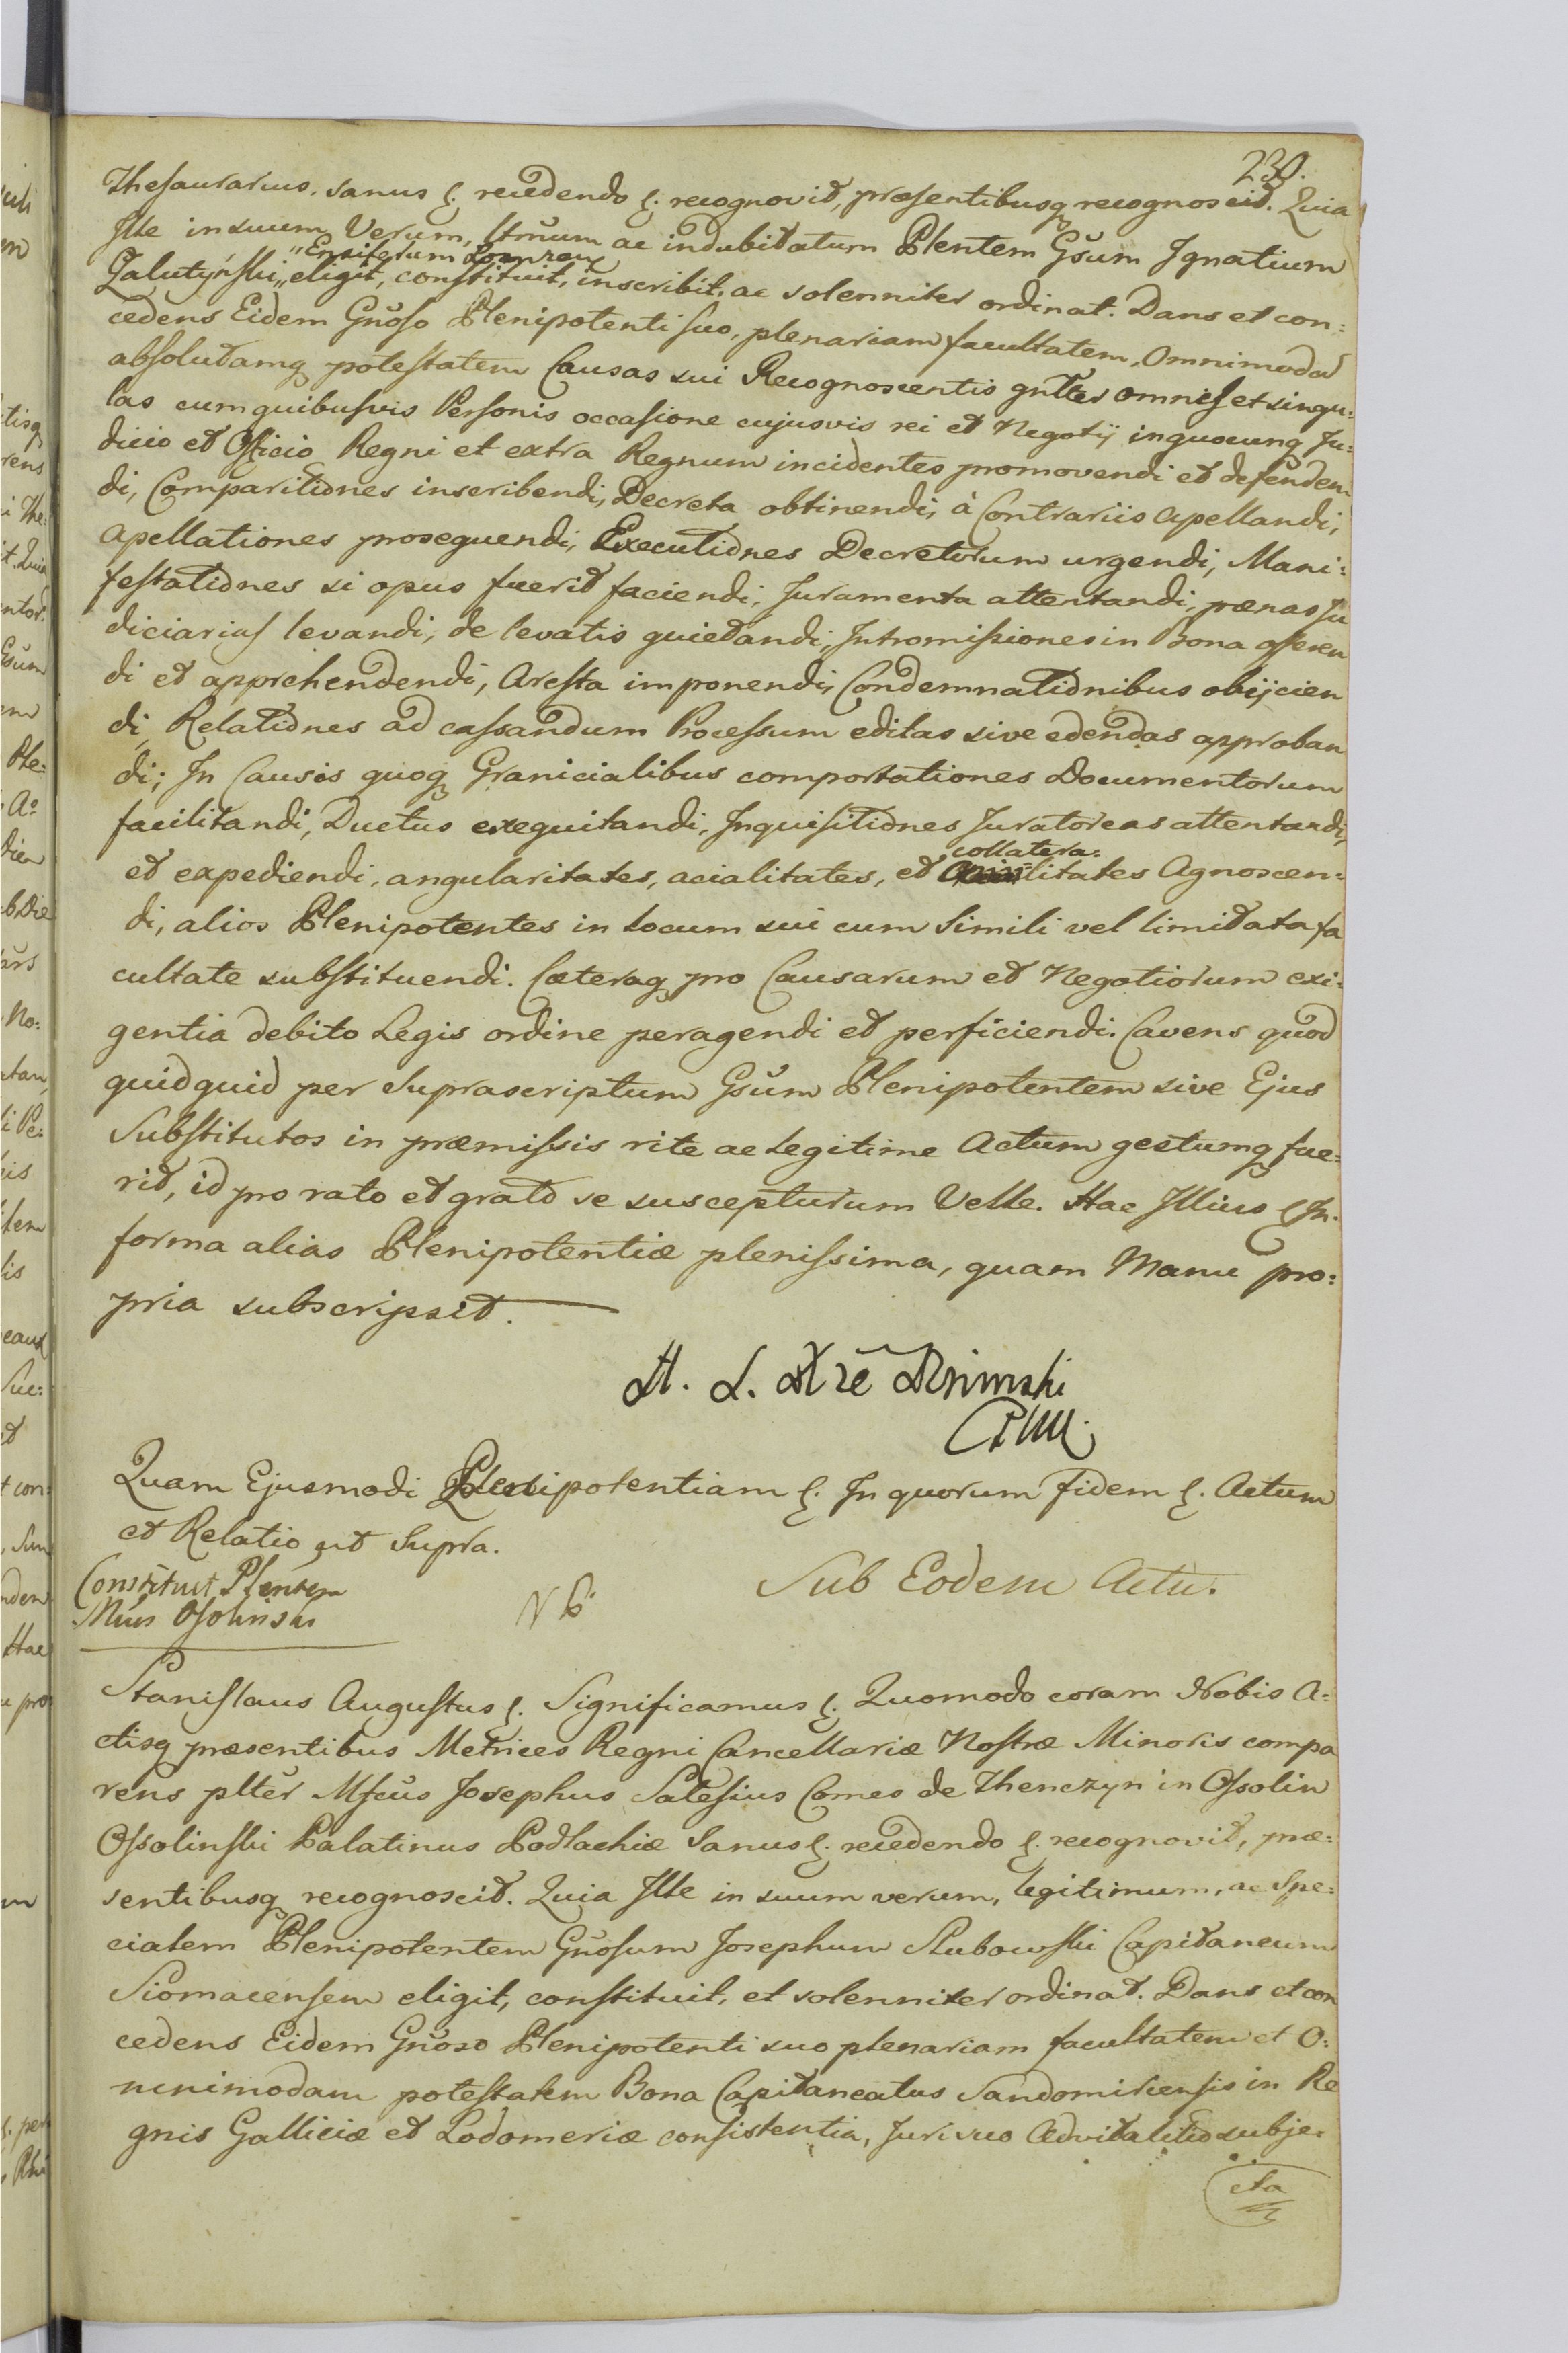 230.
Thesaurarius. Sanus &. recedendo &. recognovit, præsentibusq recognoscit. Quia
Ille in suum Verum, ltmũum ac indubitatum Plentem Gsũm Ignatium
"Ensiferum Lomzen
Zalutyński,, eligit, constituit, inscribit, ac solenniter ordinat. Dans et con:
cedens Eidem Gnõso Plenipotenti suo, plenariam facultatem, Omnimodã
absolutamq potestatem Causas sui Recognoscentis gnltes omnes et singu:
las cum quibusvis Personis occasione cujusvis rei et Negotij in quocunq Ju:
dicio et Officio Regni et extra Regnum incidentes promovendi et defenden
di, Comparitiones inscribendi, Decreta obtinendi, à Contrariis Apellandi,
Apellationes prosequendi, Executiones Decretorum urgendi, Mani:
festationes si opus fuerit faciendi, Juramenta attentandi, pænas Ju
diciarias levandi, de levatis quietandi, Intromissiones in Bona asseren
di et apprehendendi, Aresta imponendi, Condemnationibus obijcien
di, Relationes ad cassandum Processum editas sive edendas approban
di; In Causis quoq Granicialibus comportationes Documentorum
facilitandi, Ductus exequitandi, Inquisitiones Juratoreas attentandi,
collatera:
et expediendi, angularitates, acialitates, et litates Agnoscen:
di, alios Plenipotentes in Locum sui cum simili vel limitata fa
cultate substituendi. Cæteraq pro Causarum et Negotiorum exi:
gentia debito Legis ordine peragendi et perficiendi. Cavens quod
quidquid per Suprascriptum Gsũm Plenipotentem sive Ejus
Substitutos in præmissis rite ac Legitime Actum gestumq fue:
rit, id pro rato et grato se suscepturum Velle. Hac Illius &. In.
forma alias Plenipotentiæ plenissima, quam Manu pro:
pria subscripsit.
Quam Ejusmodi Plenipotentiam &. In quorum fidem &. Actum
et Relatio ut Supra.
Constituit Plentem
Mcus Ossolinski
Sub Eodem Actu.
Stanislaus Augustus &. Significamus &. Quomodo coram Nobis A:
ctisq præsentibus Metrices Regni Cancellariæ Nostræ Minoris compa
rens pltẽr Mfcũs Josephus Salesius Comes de Thenczyn in Ossolin
Ossolinski Palatinus Podlachiæ Sanus &. recedendo &. recognovit, præ:
sentibusq recognoscit. Quia Ille in suum verum, legitimum, ac Spe:
cialem Plenipotentem Gnõsum Josephum Slubowski Capitaneum
Siomacensem eligit, constituit, et solenniter ordinat. Dans et con
cedens Eidem Gnõso Plenipotenti suo plenariam facultatem et O:
mnimodam potestatem Bona Capitaneatus Sandomiriensis in Re
gnis Galliciæ et Lodomeriæ consistentia, Juri suo Advitalitio subje:
cta